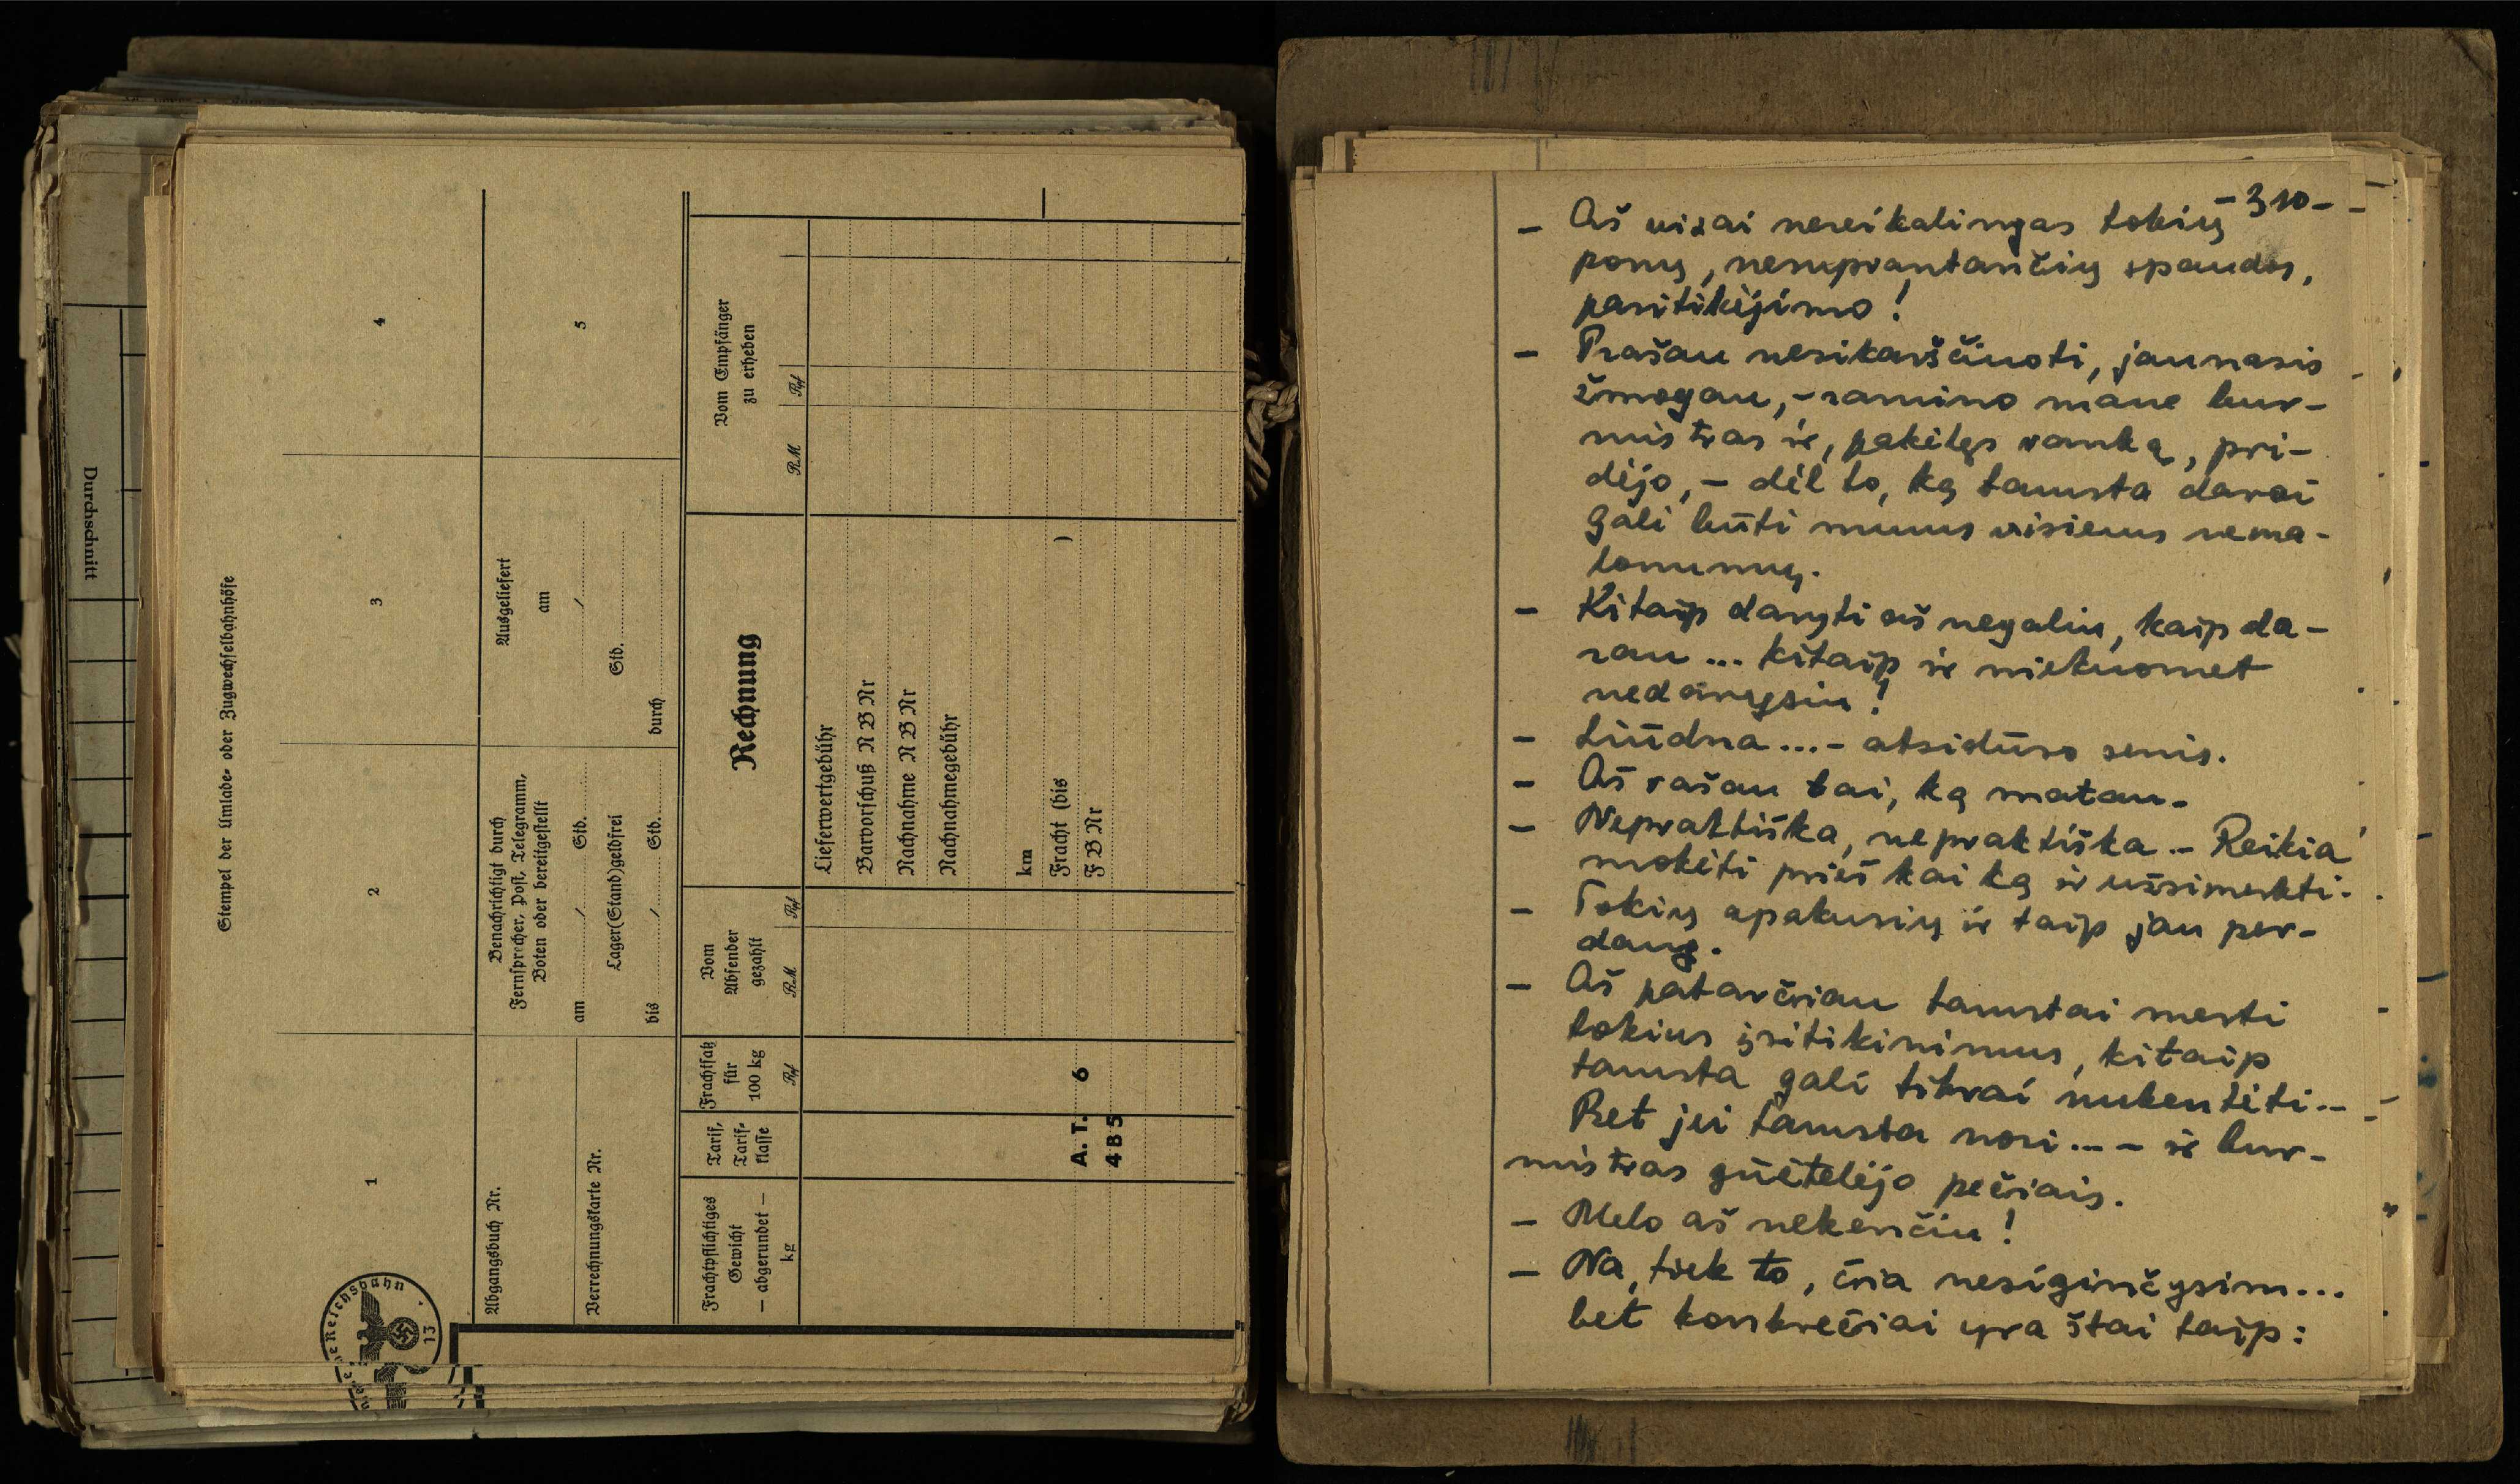 Durchschnitt
Stempel der Umlade- oder Zugwechselbahnhöfe
1
2
3
4
Abgangsbuch Nr.
Verrechnungskarte Nr.
Benachrichtigt durch
Fernsprecher, Post, Telegramm,
Boten oder bereitgestellt
am / Std.
Lager(Stand)geldfrei
bis / Std.
Ausgeliefert
am
/
Std.
durch
5
Frachtpflichtiges
Gewicht
— abgerundet —
kg
Tarif,
Tarif-
klasse
Frachtsatz
für
100 kg
Rpf
Vom
Absender
gezahlt
RM Rpf
Rechnung
Vom Empfänger
zu erheben
RM Rpf
Lieferwertgebühr
Barvorschuß N B Nr
Nachnahme N B Nr
Nachnahmegebühr
km
Fracht (bis )
F B Nr
A. T. 6
4 B 5
Reichsbahn
13
- 310 -
- Aš visai nereikalingas tokių
ponų, nesuprantančių spaudos,
pasitikėjimo!
- Prašau nesikarščiuoti, jaunasis
žmogau, - ramino mane bur-
mistras ir, pakėlęs ranką, pri-
dėjo, - dėl to, ką tamsta darai
gali būti mums visiems nema-
lonumų.
- Kitaip daryti aš negaliu, kaip da-
rau ... kitaip ir niekuomet
nedarysiu!
- Liūdna ... - atsidūso senis.
- Aš rašau tai, ką matau.
- Nepraktiška, nepraktiška. - Reikia
mokėti prieš kai ką ir užsimerkti.
- Tokių apakusių ir taip jau per-
daug.
- Aš patarčiau tamstai mesti
tokius įsitikinimus, kitaip
tamsta gali tikrai nukentėti...
Bet jei tamsta nori ... - ir bur-
mistras gūžtelėjo pečiais.
- Melo aš nekenčiu!
- Na, tiek to, čia nesiginčysim...
bet konkrečiai yra štai taip: